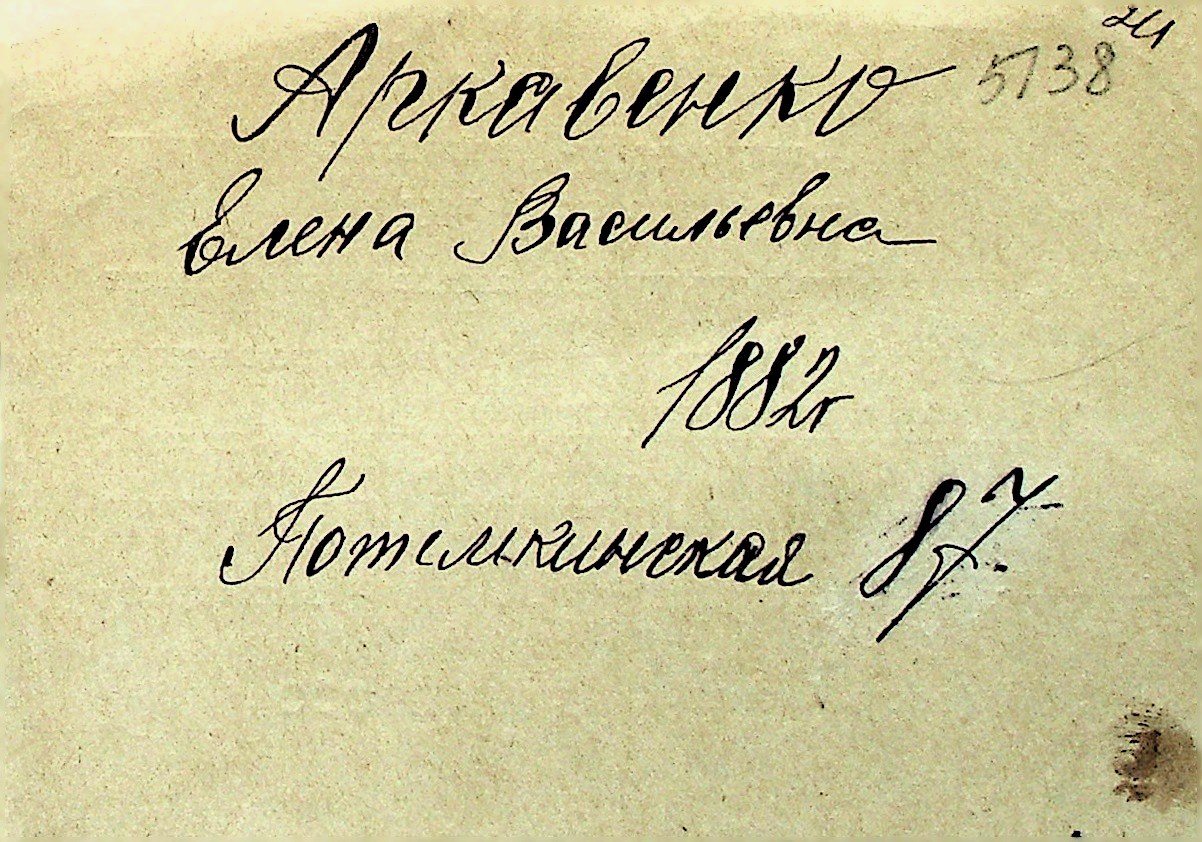 Аркавенко 5138
Елена Васильевна
1882г
Потемкинская 87.